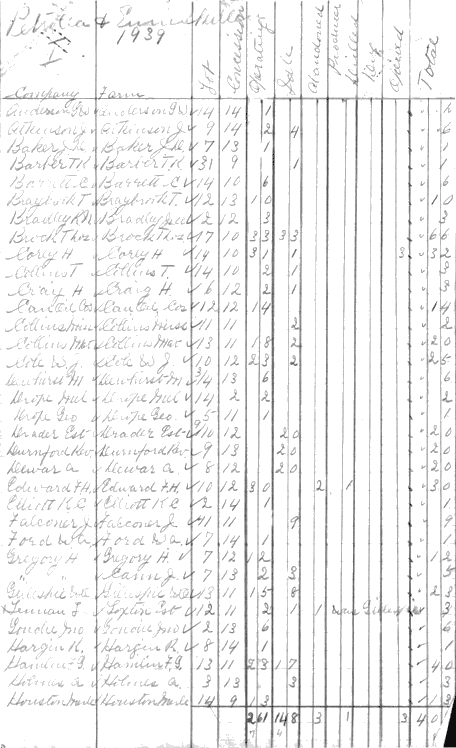 Petrolia & Enniskillen
1939
I
Company Farm Lot Concession Operating Idle Abandoned Producer Drilled Dry Opened Total
Anderson GW Anderson GW 14 14 1 1
Atkinson J Atkinson J 9 14 2 4 6
Baker J.D. Baker J.D. 7 13 1 1
Barber T.K Barber T.K 31 9 1 1
Barrett C Barrett C 14 10 6 6
Braybrook T. Braybrook T. 12 13 10 10
Bradley Bradley 2 12 3 3
Brock Thos Brock Thos 17 10 33 33 66
Corey H Corey H 14 10 31 1 3 32
Collins T Collins T. 14 10 2 1 3
Craig H Craig H 6 12 2 1 3
Cantel Cos Cantel Cos 12 12 14 14
Collins Miss Collins Miss 11 11 2 2
Collins Mat Collins Mat 13 11 18 2 20
Cote W.J. Cote W J 10 12 23 2 25
Dewhirst M Dewhirst M 14 13 6 6
Drope Mel Drope Mel 14 2 2 2
Drope Geo Drope Geo. 5 11 1 1
Drader Est Drader Est 10 12 20 20
Durnford Rev Durnford Rev 9 13 20 20
Dewar A. Dewar A. 8 12 20 20
Edward F.H. Edward F.H. 10 12 30 2 1 30
Elliott K.C Elliott K C 2 14 1 1
Falconer J Falconer J 11 11 9 9
Ford W.A Ford W.A 7 14 1 1
Gregory H Gregory H. 7 12 12 12
" " Cann J. 7 13 2 3 5
Gillespie Gillespie 13 11 15 8 23
F. Est 12 11 2 1 1 was Gillespie 3
Goudie Jno Goudie Jno 2 13 6 6
Hargin R. Hargin R. 8 14 1 1
Hamlin F.G. Hamlin F.G. 13 11 23 17 40
Holmes A. Holmes A. 3 13 3 3
Houston Houston 14 9 13 13
261 148 3 1 3 40